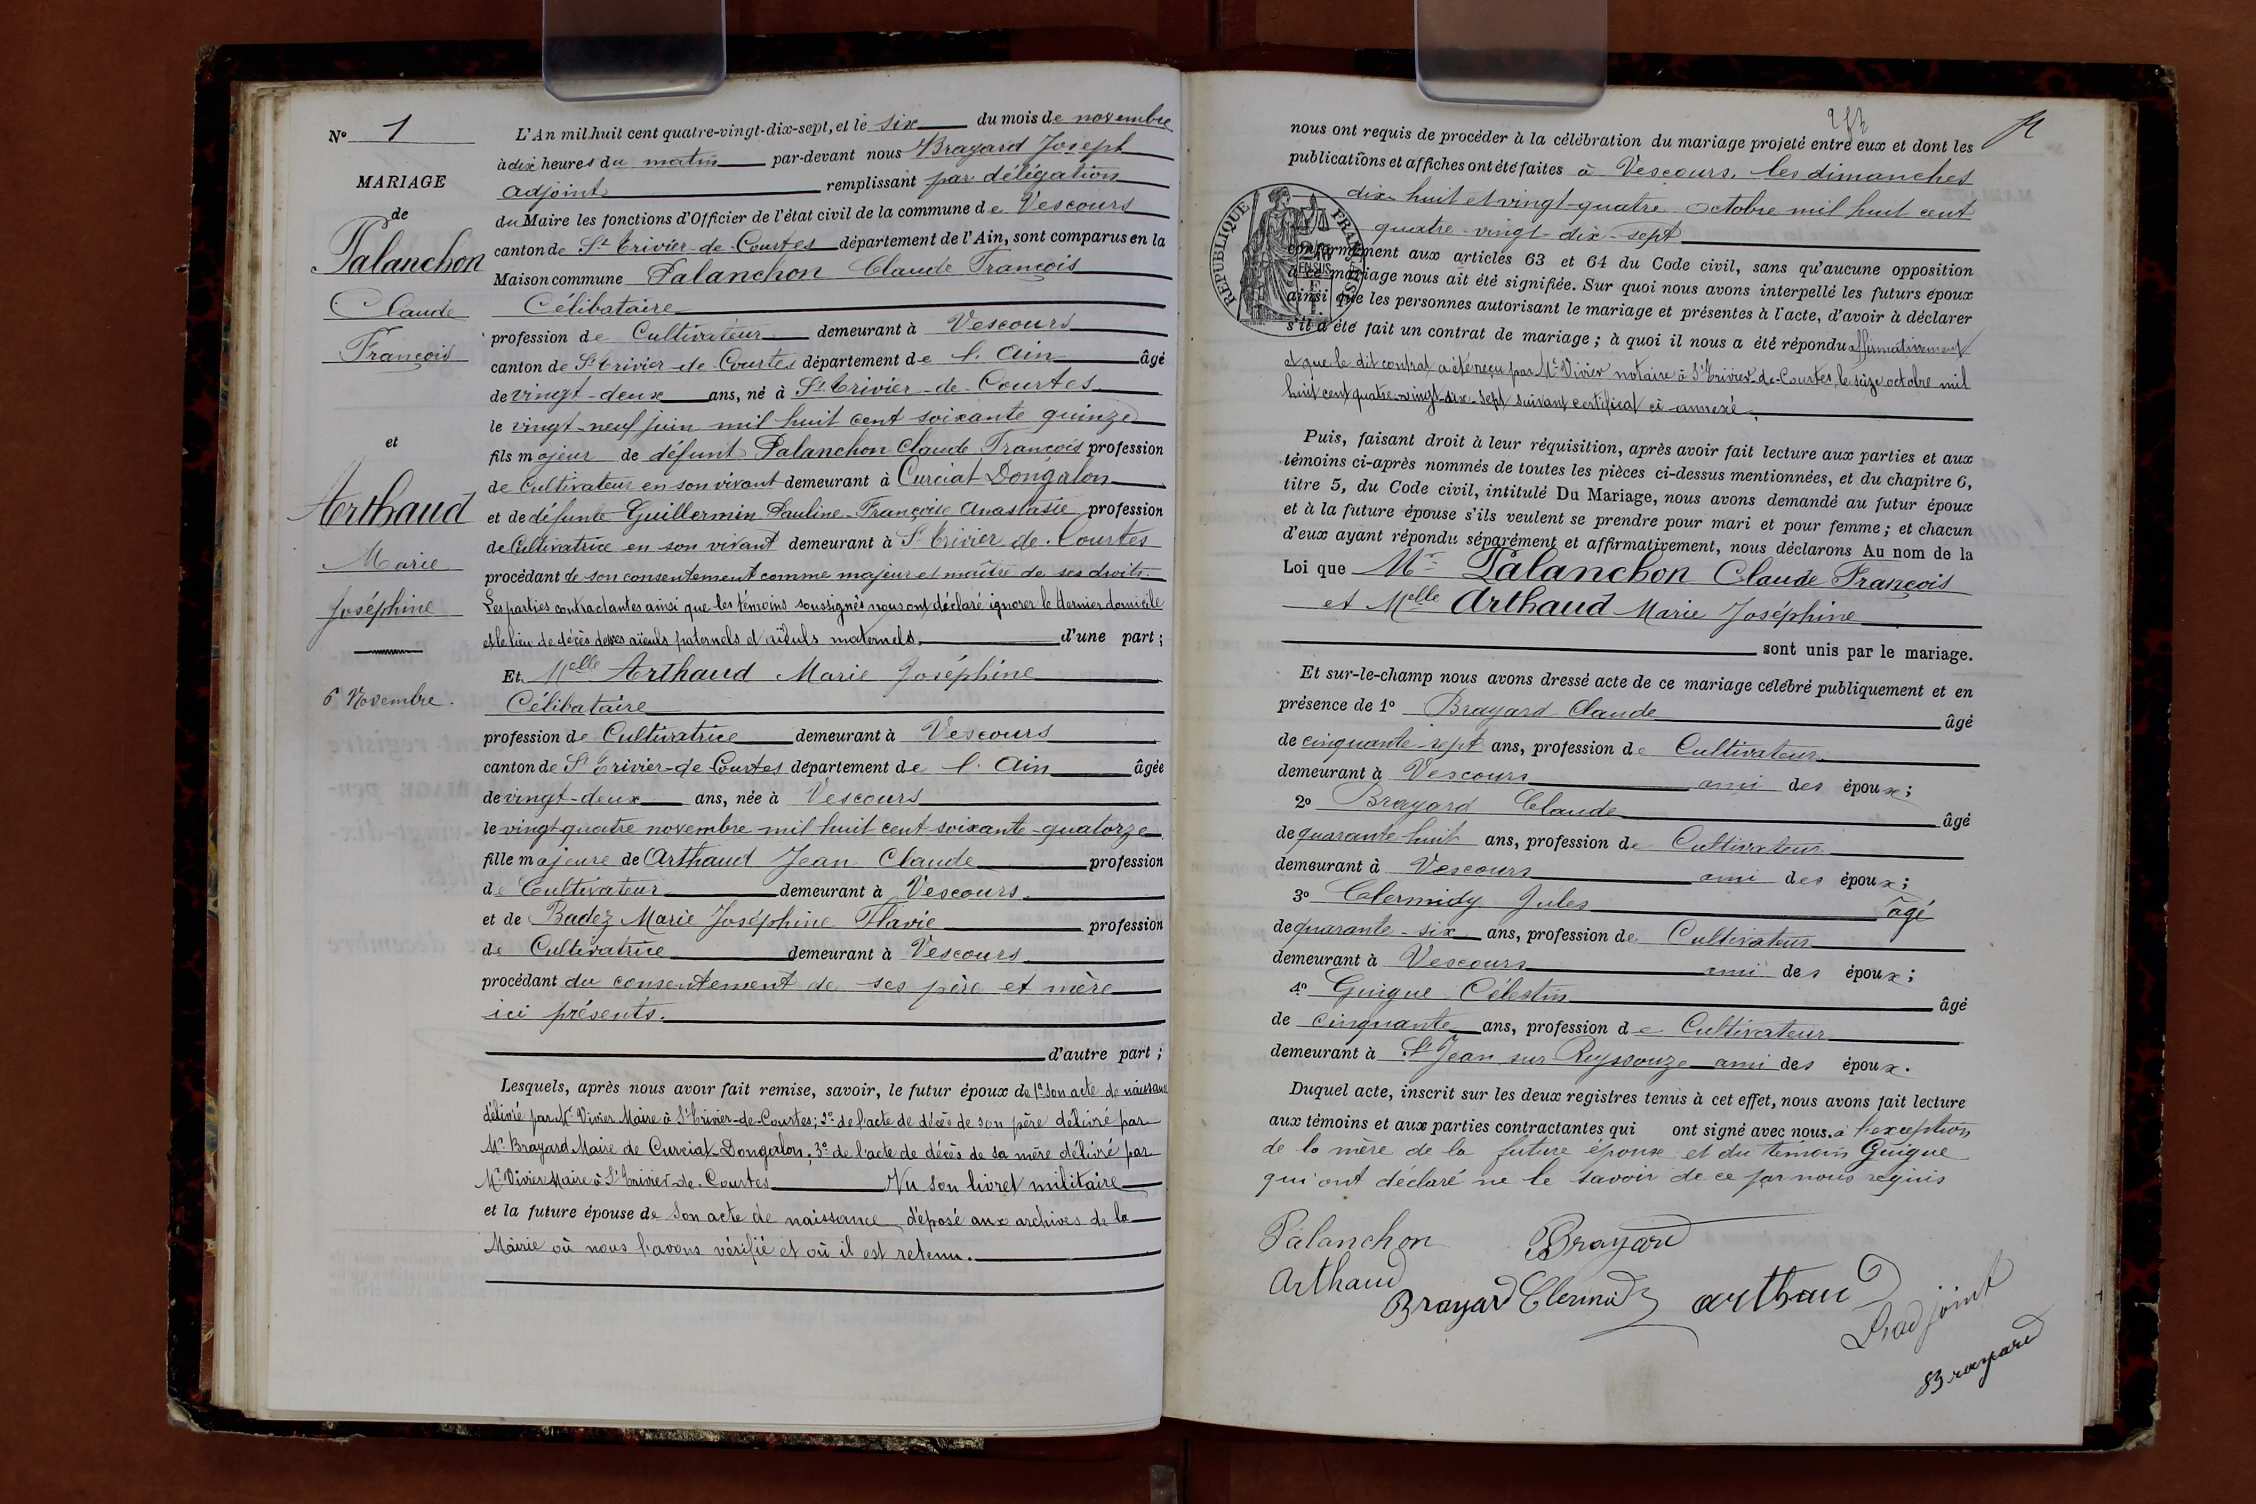 N° 1
MARIAGE
de
Palanchon
Claude
François
et
Arthaud
Marie
Joséphine
6 Novembre.
L'An mil huit cent quatre-vingt-dix-sept, et le six du mois de novembre
à dix heures du matin par-devant nous Brayard Joseph
adjoint remplissant par délégation
du Maire les fonctions d'Officier de l'état civil de la commune de Vescours
canton de St Trivier-de-Courtes département de l'Ain, sont comparus en la
Maison commune Palanchon Claude François
Célibataire
profession de Cultivateur demeurant à Vescours
canton de St Trivier-de-Courtes département de l'Ain âgé
de vingt-deux ans, né à St Trivier-de-Courtes
le vingt-neuf juin mil huit cent soixante quinze
fils majeur de défunt Palanchon Claude François profession
de Cultivateur en son vivant demeurant à Curciat Dongalon
et de défunte Guillermin Pauline-Françoise Anastasie profession
de Cultivatrice en son vivant demeurant à St Trivier de-Courtes
procédant de son consentement comme majeur et maître de ses droits.
Les parties contractantes ainsi que les témoins soussignés nous ont déclaré ignorer le dernier domicile
et le lieu de décès de ses aïeuls paternels et aïeuls maternels d'une part;
Et Melle Arthaud Marie Joséphine
Célibataire
profession de Cultivatrice demeurant à Vescours
canton de St Trivier-de-Courtes département de l'Ain âgée
de vingt-deux ans, née à Vescours
le vingt quatre novembre mil huit cent soixante-quatorze
fille majeure de Arthaud Jean Claude profession
de Cultivateur demeurant à Vescours
et de Badez Marie Joséphine Flavie profession
de Cultivatrice demeurant à Vescours
procédant du consentement de ses père et mère
ici présents.
d'autre part;
Lesquels, après nous avoir fait remise, savoir, le futur époux de 1° son acte de naissance
délivré par Mr Vivier Maire à St Trivier-de-Courtes; 2° de l'acte de décès de son père délivré par
Mr Brayard Maire de Curciat-Dongalon; 3° de l'acte de décès de sa mère délivré par
Mr Vivier Maire à St Trivier-de-Courtes Vu son livret militaire
et la future épouse de son acte de naissance déposé aux archives de la
Mairie où nous l'avons vérifié et où il est retenu.
nous ont requis de procéder à la célébration du mariage projeté entre eux et dont les
publications et affiches ont été faites à Vescours, les dimanches
dix-huit et vingt-quatre octobre mil huit cent
quatre-vingt-dix-sept
RÉPUBLIQUE FRANÇAISE
conformément aux articles 63 et 64 du Code civil, sans qu'aucune opposition
à ce mariage nous ait été signifiée. Sur quoi nous avons interpellé les futurs époux
ainsi que les personnes autorisant le mariage et présentes à l'acte, d'avoir à déclarer
s'il a été fait un contrat de mariage; à quoi il nous a été répondu affirmativement
et que le dit contrat a été reçu par Me Vivier notaire à St Trivier-de-Courtes, le seize octobre mil
huit cent quatre-vingt-dix-sept suivant certificat ci-annexé.
Puis, faisant droit à leur réquisition, après avoir fait lecture aux parties et aux
témoins ci-après nommés de toutes les pièces ci-dessus mentionnées, et du chapitre 6,
titre 5, du Code civil, intitulé Du Mariage, nous avons demandé au futur époux
et à la future épouse s'ils veulent se prendre pour mari et pour femme; et chacun
d'eux ayant répondu séparément et affirmativement, nous déclarons Au nom de la
Loi que Mr Palanchon Claude François
et Melle Arthaud Marie Joséphine
sont unis par le mariage.
Et sur-le-champ nous avons dressé acte de ce mariage célébré publiquement et en
présence de 1° Brayard Claude âgé
de cinquante-sept ans, profession de Cultivateur
demeurant à Vescours ami des époux;
2° Brayard Claude âgé
de quarante huit ans, profession de Cultivateur
demeurant à Vescours ami des époux;
3° Clermidy Jules âgé
de quarante-six ans, profession de Cultivateur
demeurant à Vescours ami des époux;
4° Guigue Célestin âgé
de cinquante ans, profession de Cultivateur
demeurant à St Jean sur Reyssouze ami des époux.
Duquel acte, inscrit sur les deux registres tenus à cet effet, nous avons fait lecture
aux témoins et aux parties contractantes qui ont signé avec nous. à l'exception
de la mère de la future épouse et du témoin Guigue
qui ont déclaré ne le savoir de ce par nous requis
Palanchon Brayard
Arthaud
Brayard Clermidy arthaud
L'adjoint
Brayard